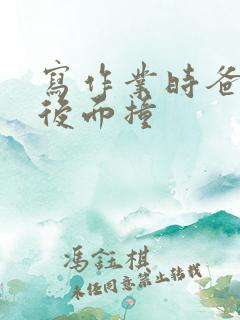 寫作業時爸
後而撞
馮鈺棋
未经同意禁止转载